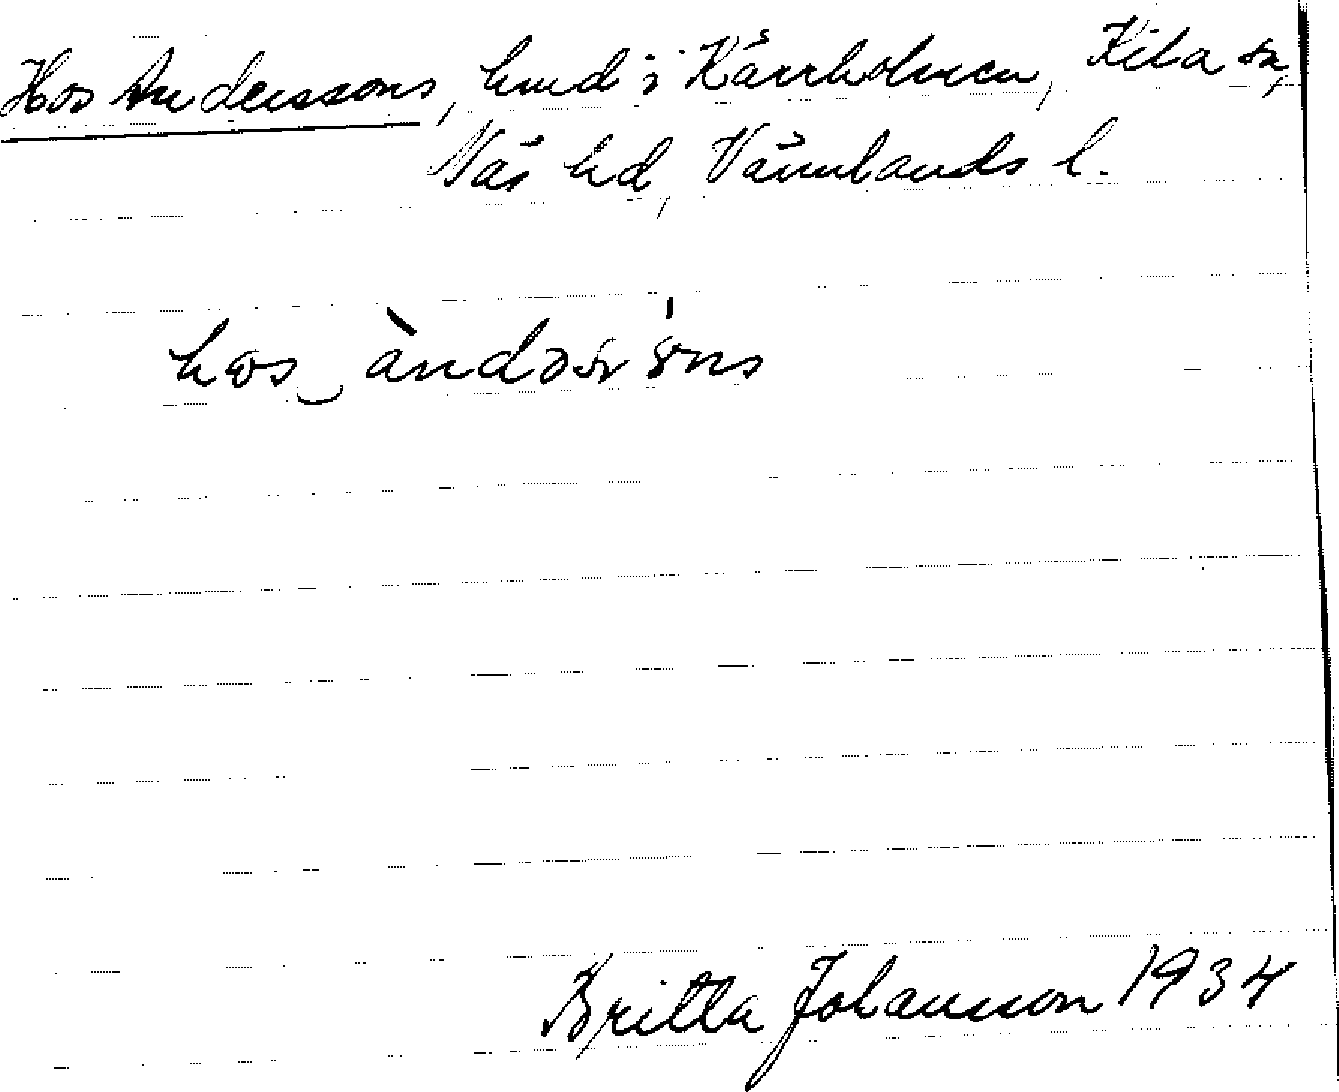 Hos Anderssons, hmd i Kärrholmen, Kila sn,
Näs hd, Värmlands l.
hos
Britta Johansson 1934